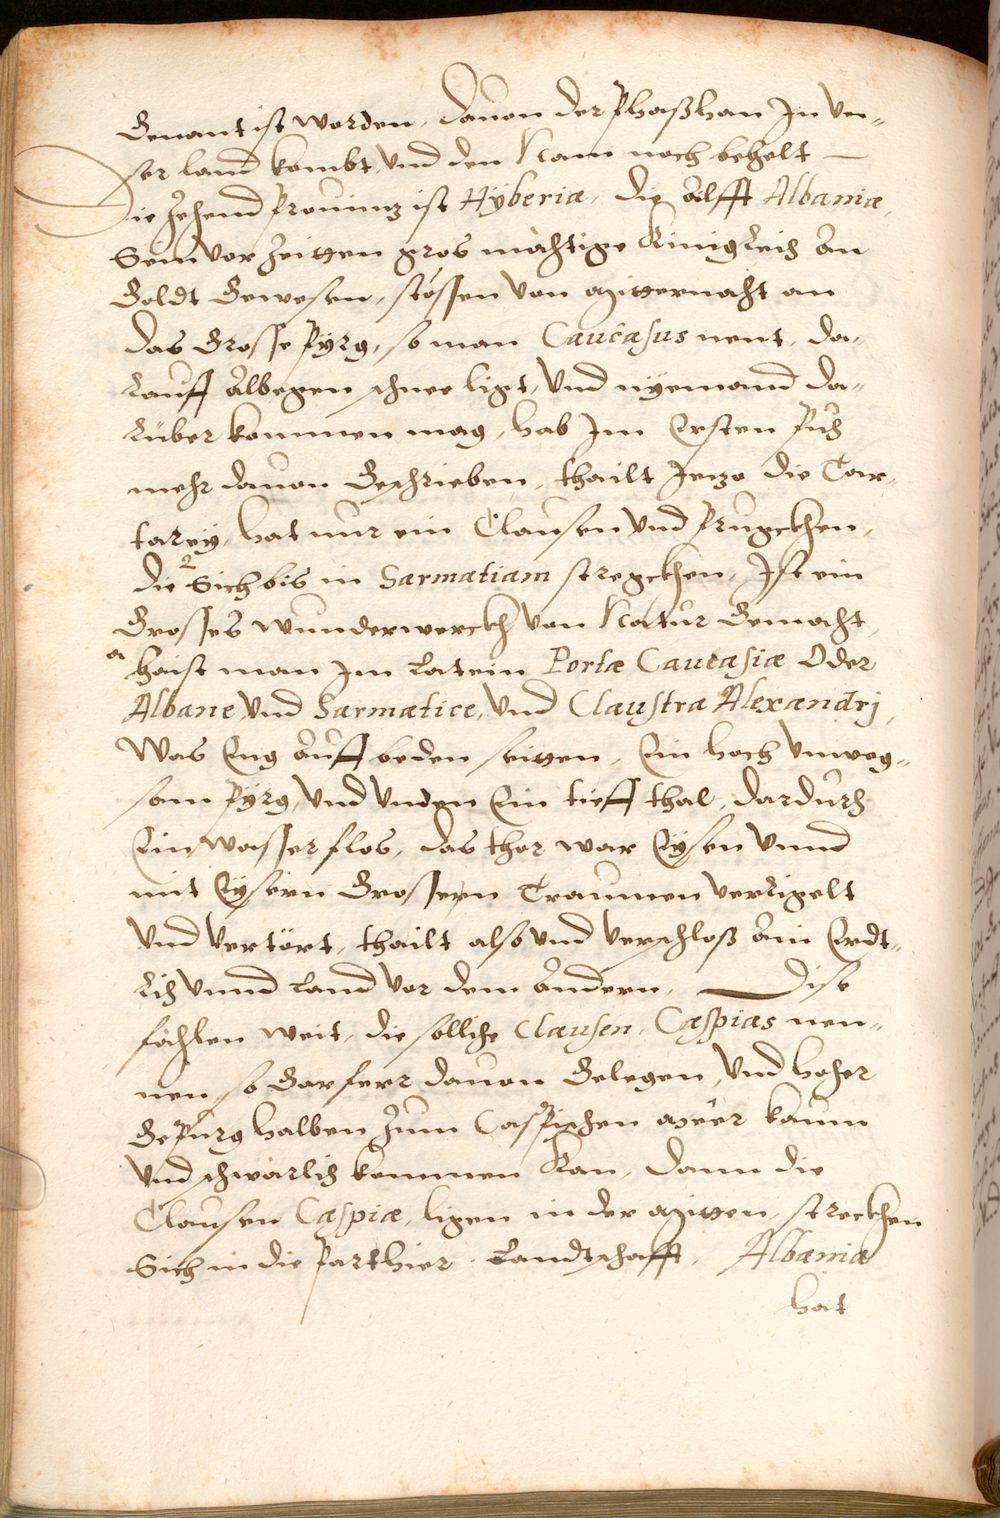 Genant ist worden, dauon der Phaßhan In vn¬
ser land kombt, vnd den Nam noch behelt —
Die zehend Prouintz ist Hÿberiæ, die ailfft Albaniæ,
Seind vor zeitten gros mächtige Kinigreich an
Goldt Gewesen, stossen von mitternacht an
das Grosse Pÿrg, so man Caucasus nent, da¬
rauff albegen schnee ligt, vnd nÿemand da¬
rüber kommen mag, hab Im Ersten Puch
mehr dauon Geschrieben, thailt Jetzo die Tar¬
tareÿ, hat nur ein Clausen vnd Prugckhen,
die 2 Sich bis in Sarmatiam stregckhen, Ist ein
Grosses wunderwerckh von Natur Gemacht,
a haist man Im Latein Portæ Caucasiæ Oder
Albane, vnd Sarmatice, vnd Claustra Alexandrj,
Was Eng auff beden seitten, Ein hoch vnweg¬
sam Pÿrg, vnd vnden Ein tieff thal, dardurch
Ein wasser flos, das thor war Eÿsen vnnd
mit Eÿsern Grossern Traumen verrigelt
vnd vertört, thailt also vnd verschloß ain Erdt¬
rich vnnd Land vor dem andern, — Dise
fählen weit, die sölliche Clausen, Caspias nen¬
nen, so Gar ferr dauon Gelegen, vnd hoher
Gepürg halben zum Caspischen meer kaum
vnd schwärlich kommen kan, dann die
Clausen Caspiæ, ligen in der mitten, streckhen
Sich in die Parthier Landtschafft, Albania
hat